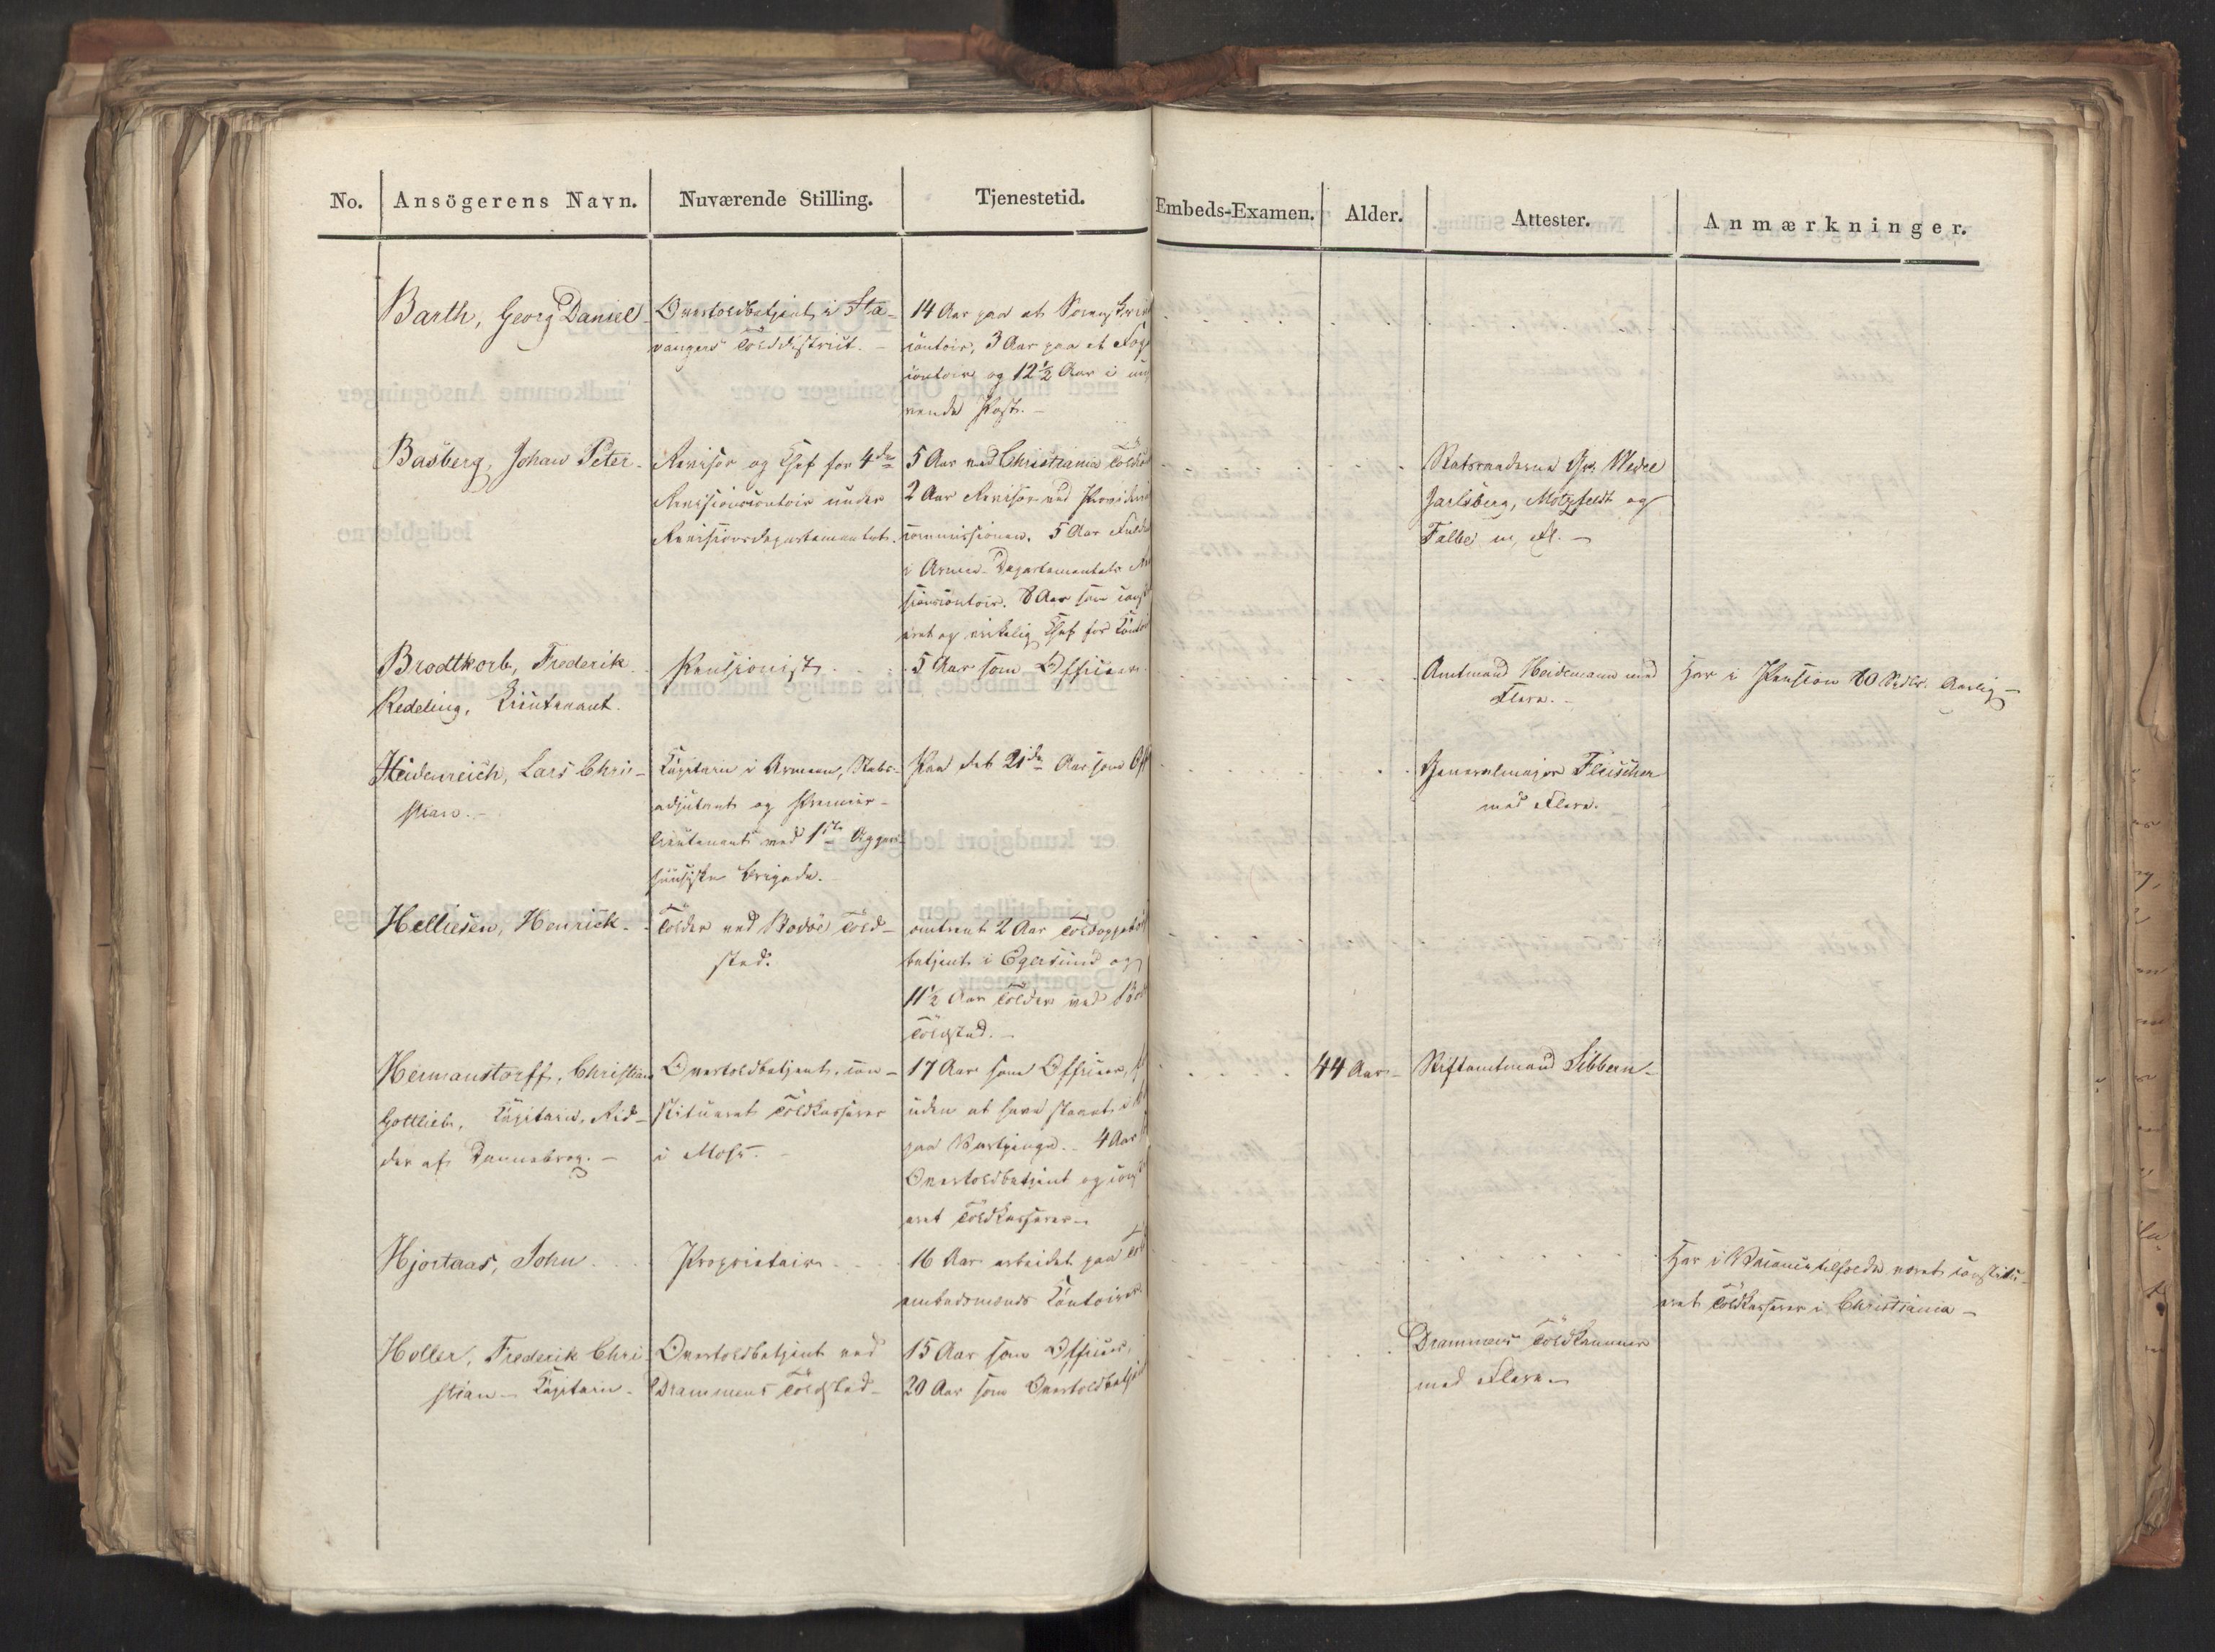 No. Ansögerens Navn. Nuværende Stilling. Tjenestetid. Embeds-Examen. Alder. Attester. Anmærkninger.
Barth, Georg Daniel
Overtoldbetjent i Sta-
vangers Tolddistrict. -
14 Aar paa et
contoir, 3 Aar paa et
contoir og 12½ Aar i
rende Post. -
Basberg, Johan Peter
Revisor og Chef for 4de
Revisionscontoir under
Revisionsdepartementet.
5 Aar ved Christiania
2 Aar Revisor ved
commissionen. 5 Aar
i Armee-Departementets
sionscontoir. 8 Aar som
eret og virkelig Chef for
Statsraaderne Gr. Wedel
Jarlsberg, Motzfeldt og
Falbe m. fl. -
Brodtkorb, Frederik
Redeling, Lieutenant.
Pensionist
5 Aar som Officeer
Amtmand Heidemann med
Flere. -
Har i Pension 80 Spdlr. Aarlig -
Heidenreich, Lars Chri-
stian. -
Capitain i Armeen, Stabs-
adjutant og Premier-
lieutenant ved 1ste Aggers-
huusiske Brigade.
Paa det 21de Aar som
Generalmajor Fleischer
med Flere.
Helliesen, Henrick -
Tolder ved Bodöe Told-
sted.
omtrent 2 Aar
betjent i Egersund og
11½ Aar Tolder ved
Toldsted. -
Hermanstorff, Christian
Gottlieb, Capitain, Rid-
der af Dannebrog. -
Overtoldbetjent, con-
stitueret Toldkasserer
i Moss. -
17 Aar som Officeer,
uden at have staaet
paa Vartpenge. - 4 Aar
Overtoldbetjent og
eret Toldkasserer -
44 Aar -
Stiftamtmand Sibbern -
Hjortaas, John
Proprietair
16 Aar arbeidet paa
embedsmænds Contoirer.
Har i Vacancetilfælde været constitu-
eret Toldkasserer i Christiania -
Holler, Frederik Chri-
stian - Capitain -
Overtoldbetjent ved
Drammens Toldsted -
15 Aar som Officeer,
20 Aar som
Drammens Toldkammer
med Flere -